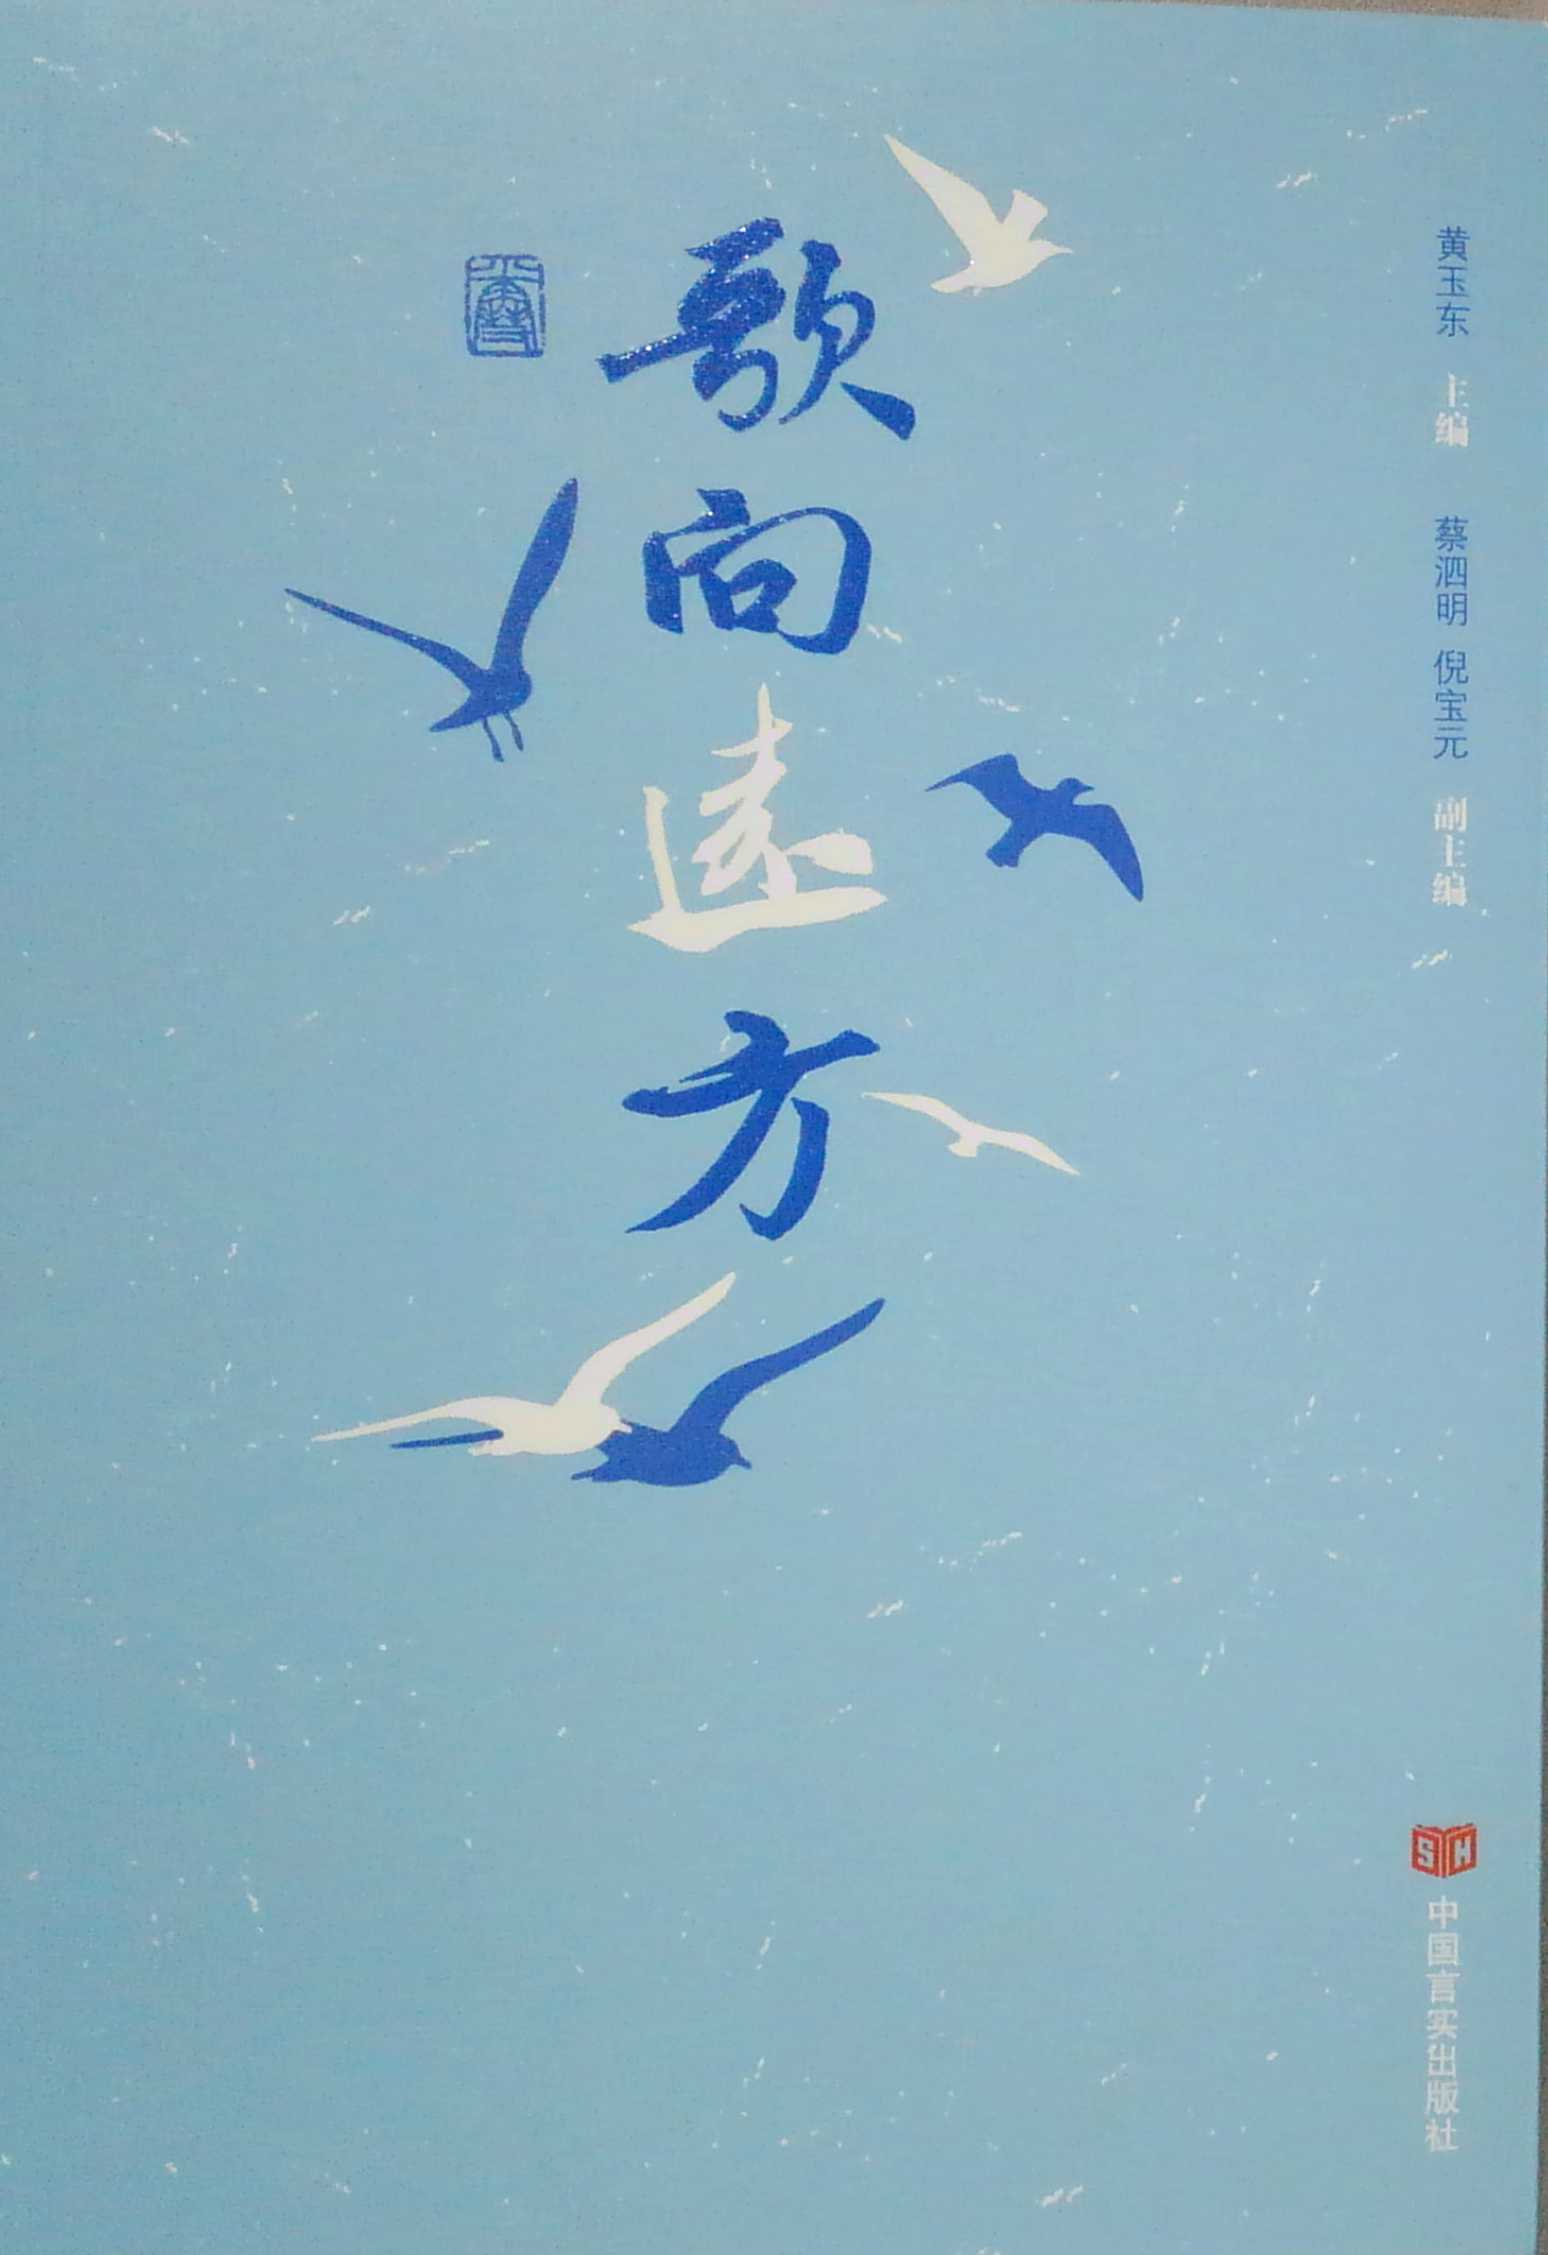 黄玉东 主编 蔡泗明 倪宝元 副主编
歌向遠方
SYH
中国言实出版社